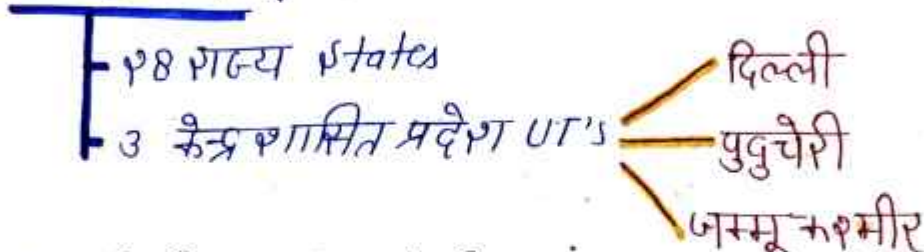 28 राज्य States
दिल्ली
3 केन्द्र शासित प्रदेश UT's
पुदुचेरी
जम्मू कश्मीर